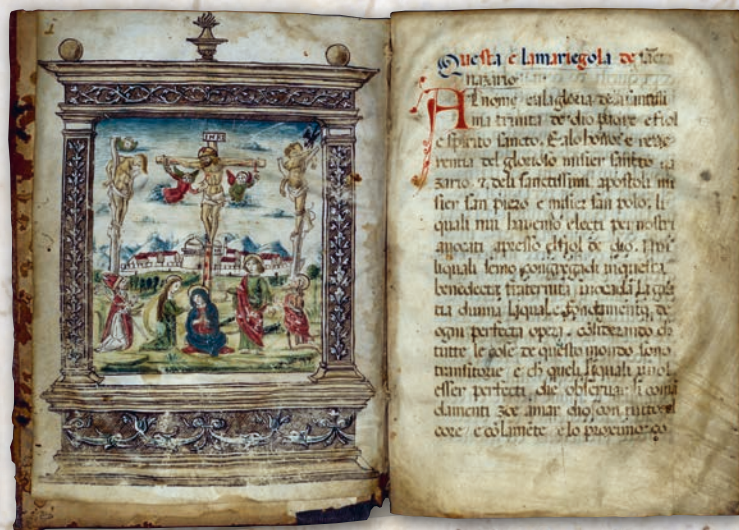 INRI
Questa e lamariegola de san
nazario
Al nome eala gloria dela santissi
ma trinita de dio padre efiol
e spirito sancto. E alo honor e reve
rentia del glorioso misier sancto na
zario 7 deli sanctissimi apostoli mi
sier san piero e misier san polo, li
quali nui havemo electi per nostri
avocati apresso elfiol de dio.
liquali semo congregadi inquesta
benedecta fraternita invocada la gra
tia divina laquale e fondamento de
ogni perfecta opera. considerando ch
tutte le cose de questo mondo sono
transitorie, e ch queli liquali vuol
esser perfecti, die observar li coma
damenti zoe amar dio con tutto el
core, e cõ la mẽte e lo proximo